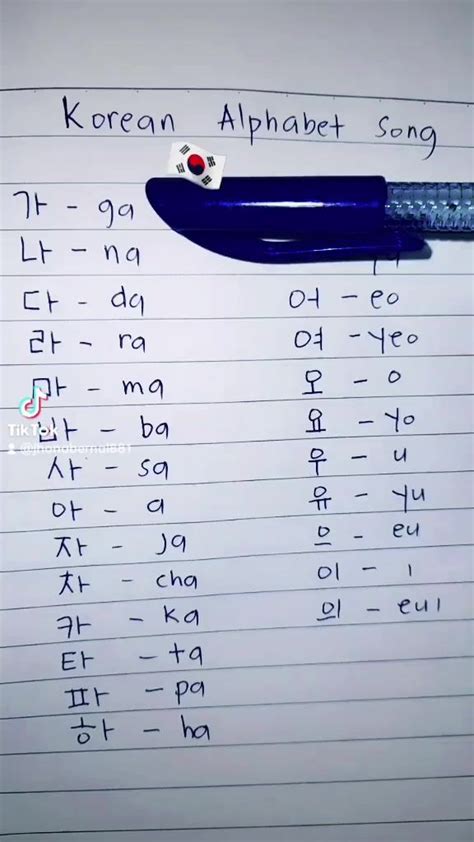 Korean Alphabet Song
가 - ga
나 - na
다 - da
라 - ra
마 - ma
바 - ba
사 - sa
아 - a
자 - ja
차 - cha
카 - ka
타 - ta
파 - pa
하 - ha
어 - eo
여 - yeo
오 - o
요 - yo
우 - u
유 - yu
으 - eu
이 - i
의 - eui
TikTok